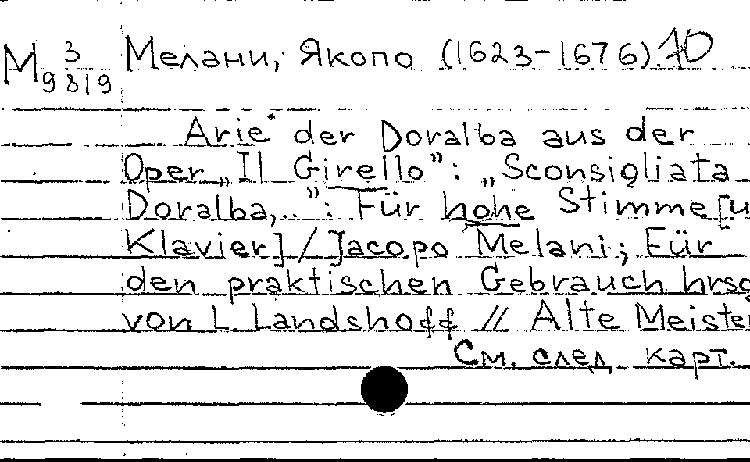 М 3/9819 Мелани, Якопо (1623-1676) Ю
Arie der Doralba aus der
Oper „Il Girello”: „Sconsigliata
Doralba,..”: Für hohe Stimme [u
Klavier] / Jacopo Melani; Für
den praktischen Gebrauch hrsg
von L. Landshoff // Alte Meister
См. след. карт.